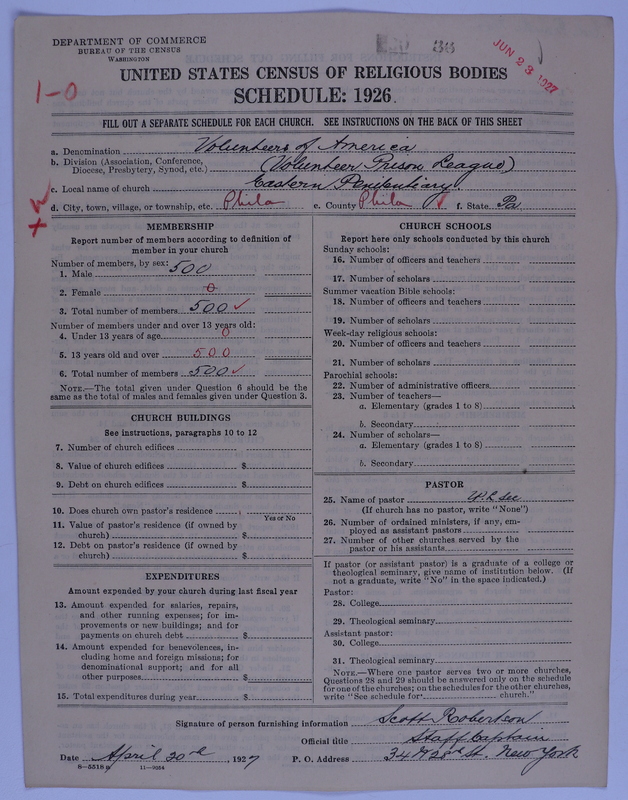 DEPARTMENT OF COMMERCE
BUREAU OF THE CENSUS
WASHINGTON
36
JUN 23 1927
1-0
UNITED STATES CENSUS OF RELIGIOUS BODIES
SCHEDULE: 1926
FILL OUT A SEPARATE SCHEDULE FOR EACH CHURCH. SEE INSTRUCTIONS ON THE BACK OF THIS SHEET
a. Denomination Volunteers of America
b. Division (Association, Conference, Diocese, Presbytery, Synod, etc.) (Volunteer Prison League)
c. Local name of church Eastern Penitentiary
d. City, town, village, or township, etc. Phila e. County Phila f. State Pa
MEMBERSHIP
Report number of members according to definition of
member in your church
Number of members, by sex:
1. Male 500
2. Female 0
3. Total number of members 500 ✓
Number of members under and over 13 years old:
4. Under 13 years of age 0
5. 13 years old and over 500
6. Total number of members 500 ✓
NOTE.—The total given under Question 6 should be the
same as the total of males and females given under Question 3.
CHURCH BUILDINGS
See instructions, paragraphs 10 to 12
7. Number of church edifices
8. Value of church edifices $
9. Debt on church edifices $
10. Does church own pastor's residence
Yes or No
11. Value of pastor's residence (if owned by
church) $
12. Debt on pastor's residence (if owned by
church) $
EXPENDITURES
Amount expended by your church during last fiscal year
13. Amount expended for salaries, repairs,
and other running expenses; for im-
provements or new buildings; and for
payments on church debt $
14. Amount expended for benevolences, in-
cluding home and foreign missions; for
denominational support; and for all
other purposes $
15. Total expenditures during year $
CHURCH SCHOOLS
Report here only schools conducted by this church
Sunday schools:
16. Number of officers and teachers
17. Number of scholars
Summer vacation Bible schools:
18. Number of officers and teachers
19. Number of scholars
Week-day religious schools:
20. Number of officers and teachers
21. Number of scholars
Parochial schools:
22. Number of administrative officers
23. Number of teachers—
a. Elementary (grades 1 to 8)
b. Secondary
24. Number of scholars—
a. Elementary (grades 1 to 8)
b. Secondary
PASTOR
25. Name of pastor
(If church has no pastor, write "None")
26. Number of ordained ministers, if any, em-
ployed as assistant pastors
27. Number of other churches served by the
pastor or his assistants
If pastor (or assistant pastor) is a graduate of a college or
theological seminary, give name of institution below. (If
not a graduate, write "No" in the space indicated.)
Pastor:
28. College
29. Theological seminary
Assistant pastor:
30. College
31. Theological seminary
NOTE.—Where one pastor serves two or more churches,
Questions 28 and 29 should be answered only on the schedule
for one of the churches; on the schedules for the other churches,
write "See schedule for church."
Signature of person furnishing information Scott Robertson
Official title Staff Captain
Date April 20th, 1927 P. O. Address 34 W 28th St. New York
8-5518 a 11-9254